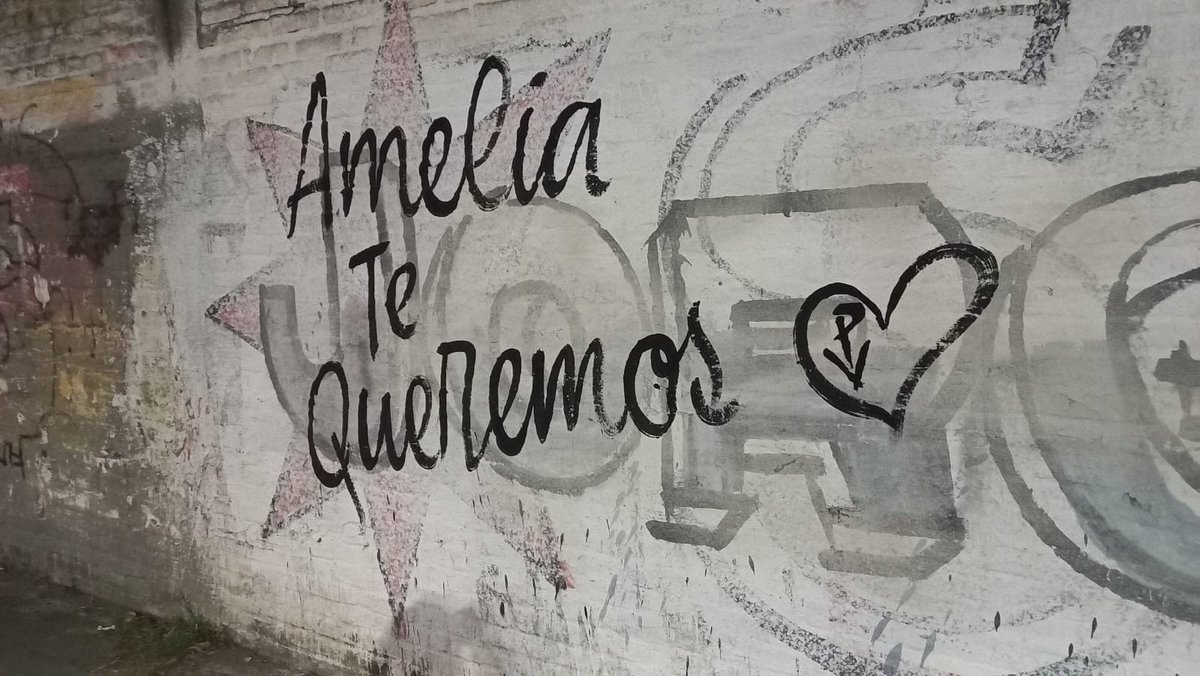 Amelia
Te
Queremos